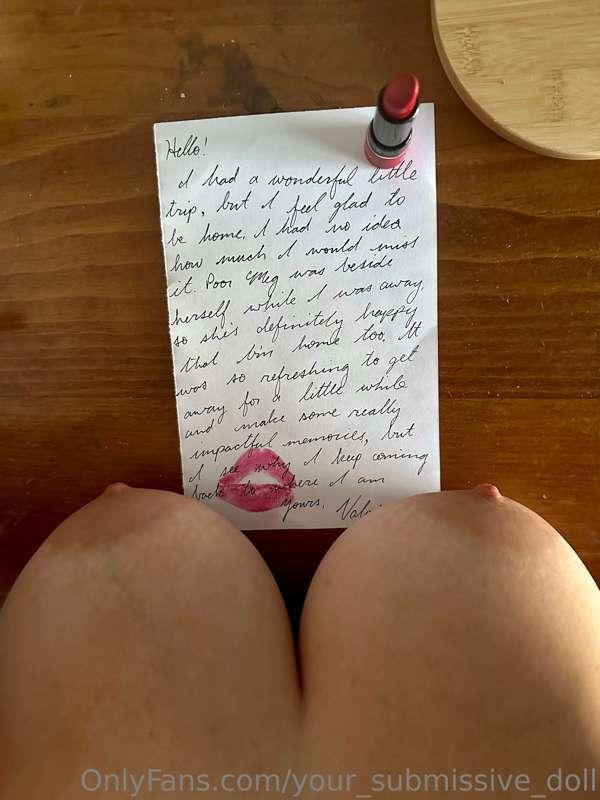 Hello!
I had a wonderful little
trip, but I feel glad to
be home. I had no idea
how much I would miss
it. Poor Meg was beside
herself while I was away,
so she's definitely happy
that I'm home too. It
was so refreshing to get
away for a little while
and make some really
impactful memories, but
I see why I keep coming
back to where I am
yours,
OnlyFans.com/your_submissive_doll